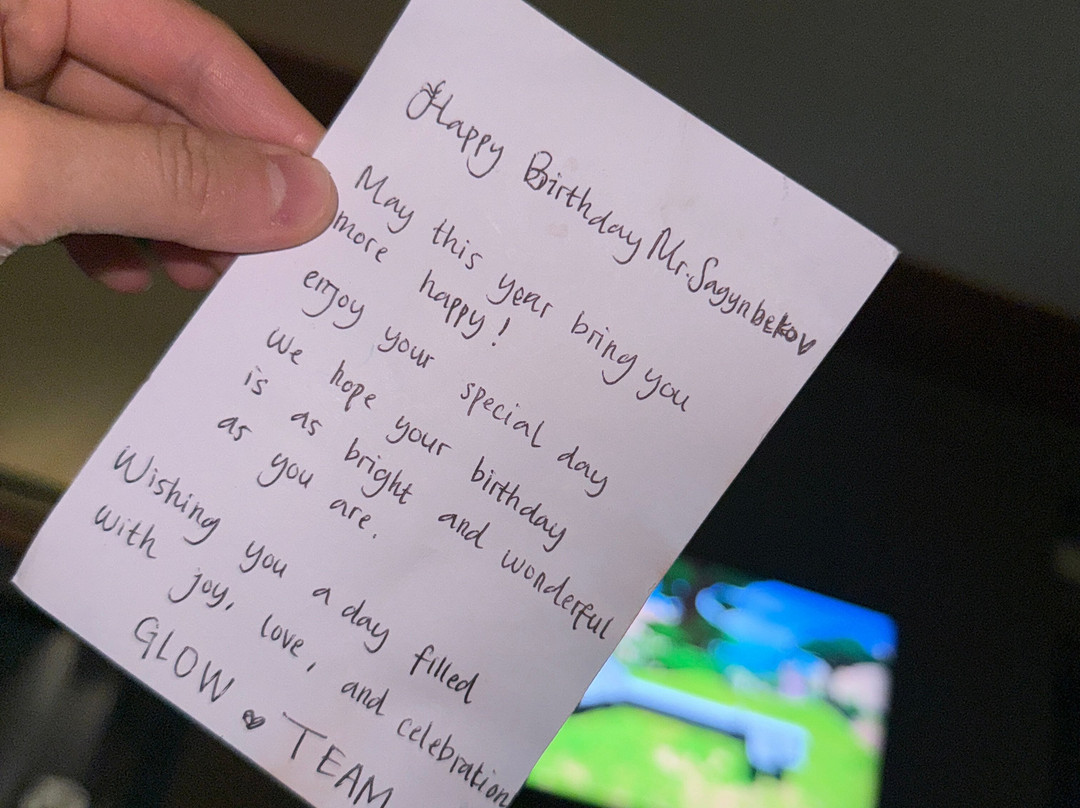 Happy Birthday Mr. Sagynbekov
May this year bring you
more happy!
enjoy your special day
We hope your birthday
is as bright and wonderful
as you are.
Wishing you a day filled
with joy, love, and celebration
GLOW ♥ TEAM